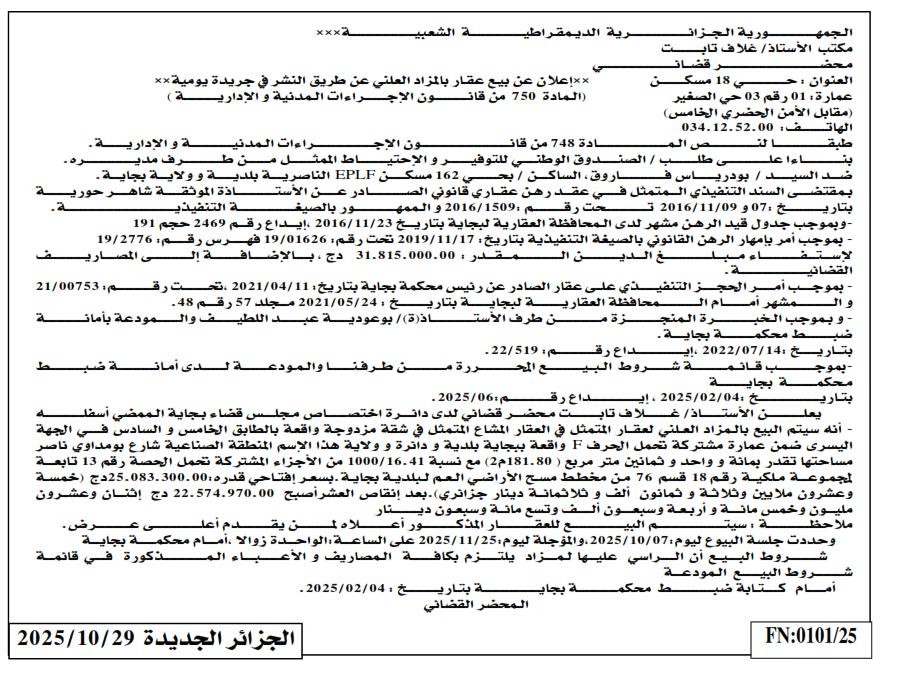 الجمهورية الجزائرية الديمقراطية الشعبية×××
مكتب الأستاذ/ غلاف ثابت
محضر قضائي
العنوان : حي 18 مسكن ××إعلان عن بيع عقار بالمزاد العلني عن طريق النشر في جريدة يومية××
عمارة: 01 رقم 03 حي الصغير (المادة 750 من قانون الإجراءات المدنية و الإدارية )
(مقابل الأمن الحضري الخامس)
الهاتف: 034.12.52.00
طبقا لنص المادة 748 من قانون الإجراءات المدنية و الإدارية.
بناءا على طلب / الصندوق الوطني للتوفير و الإحتياط الممثل من طرف مديره.
ضد السيد / بودرياس فاروق، الساكن / بحي 162 مسكن EPLF الناصرية بلدية و ولاية بجاية.
بمقتضى السند التنفيذي المتمثل في عقد رهن عقاري قانوني الصادر عن الأستاذة الموثقة شاهر حورية
بتاريخ :07 و 2016/11/09 تحت رقم :2016/1509 و الممهور بالصيغة التنفيذية.
-وبموجب جدول قيد الرهن مشهر لدى المحافظة العقارية لبجاية بتاريخ 2016/11/23 ،إيداع رقم 2469 حجم 191
- بموجب أمر بإمهار الرهن القانوني بالصيغة التنفيذية بتاريخ: 2019/11/17 تحت رقم: 19/01626 فهرس رقم: 19/2776
لإستفاء مبلغ الدين المقدر : 31.815.000.00 دج ، بالإضافة إلى المصاريف
القضائية.
- بموجب أمر الحجز التنفيذي على عقار الصادر عن رئيس محكمة بجاية بتاريخ:2021/04/11 ،تحت رقم: 21/00753
و المشهر أمام المحافظة العقارية لبجاية بتاريخ : 2021/05/24 مجلد 57 رقم 48.
- و بموجب الخبرة المنجزة من طرف الأستاذ(ة)/ بوعودية عبد اللطيف والمودعة بأمانة
ضبط محكمة بجاية.
بتاريخ :2022/07/14 ،إيداع رقم: 22/519.
-بموجب قائمة شروط البيع المحررة من طرفنا والمودعة لدى أمانة ضبط
محكمة بجاية
بتاريخ :2025/02/04 ، إيداع رقم:2025/06.
يعلن الأستاذ/ غلاف ثابت محضر قضائي لدى دائرة اختصاص مجلس قضاء بجاية الممضي أسفله
- أنه سيتم البيع بالمزاد العلني لعقار المتمثل في العقار المشاع المتمثل في شقة مزدوجة واقعة بالطابق الخامس و السادس في الجهة
اليسرى ضمن عمارة مشتركة تحمل الحرف F واقعة ببجاية بلدية و دائرة و ولاية هذا الإسم المنطقة الصناعية شارع بومداوي ناصر
مساحتها تقدر بمائة و واحد و ثمانين متر مربع ( 181.80م2) مع نسبة 1000/16.41 من الأجزاء المشتركة تحمل الحصة رقم 13 تابعة
لمجموعة ملكية رقم 18 قسم 76 من مخطط مسح الأراضي العم لبلدية بجاية.بسعر إفتتاحي قدره:25.083.300.00دج (خمسة
وعشرون ملايين وثلاثة و ثمانون ألف و ثلاثمائة دينار جزائري).بعد إنقاص العشرأصبح 22.574.970.00 دج إثنان وعشرون
مليون وخمس مائة و أربعة وسبعون ألف وتسع مائة وسبعون دينار
ملاحظة : سيتم البيع للعقار المذكور أعلاه لمن يقدم أعلى عرض.
وحددت جلسة البيوع ليوم:2025/10/07،والمؤجلة ليوم:2025/11/25 على الساعة:الواحدة زوالا ،أمام محكمة بجاية
شروط البيع أن الراسي عليها لمزاد يلتزم بكافة المصاريف و الأعباء المذكورة في قائمة
شروط البيع المودعة
أمام كتابة ضبط محكمة بجاية بتاريخ : 2025/02/04.
المحضر القضائي
الجزائر الجديدة 2025/10/29
FN:0101/25